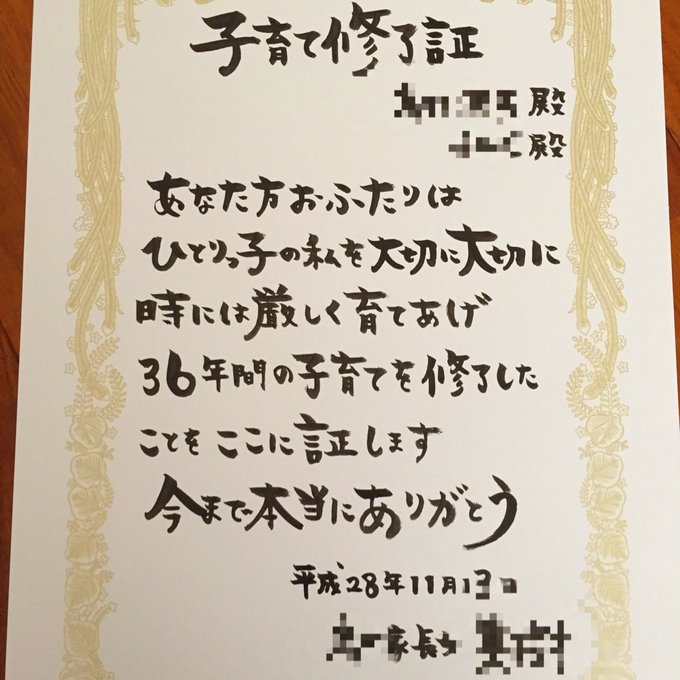 子育て修了証
殿
殿
あなた方おふたりは
ひとりっ子の私を大切に大切に
時には厳しく育てあげ
36年間の子育てを修了した
ことをここに証します
今まで本当にありがとう
平成28年11月13日
家長女